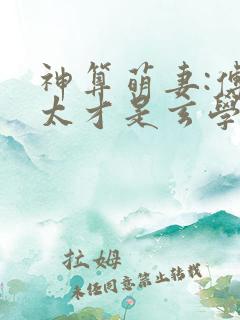 神算萌妻:傅
太才是玄學
拉姆
未经同意禁止转载